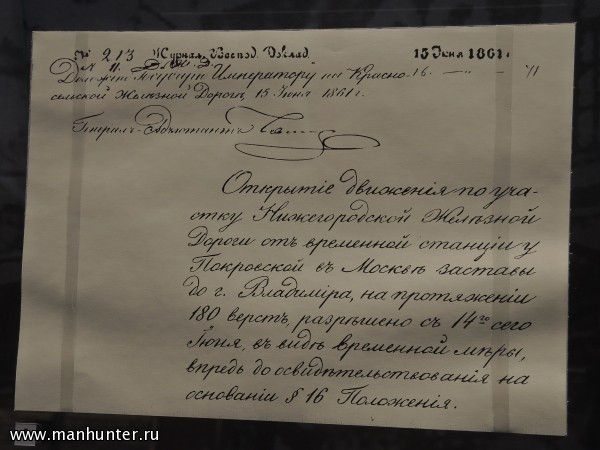 № 213 Журнал. Воспод. Доклад. 15 Июня 1861 г.
Доложен Государю Императору на Красно-
сельской Желѣзной Дорогѣ, 15 Июня 1861 г.
Генералъ-Адъютантъ
Открытіе движенія по уча-
стку Нижегородской Желѣзной
Дороги отъ временной станціи у
Покровской въ Москвѣ заставы
до г. Владиміра, на протяженіи
180 верстъ, разрѣшено съ 14го сего
Іюня, въ видѣ временной мѣры,
впредь до освидѣтельствованія на
основаніи § 16 Положенія.
www.manhunter.ru